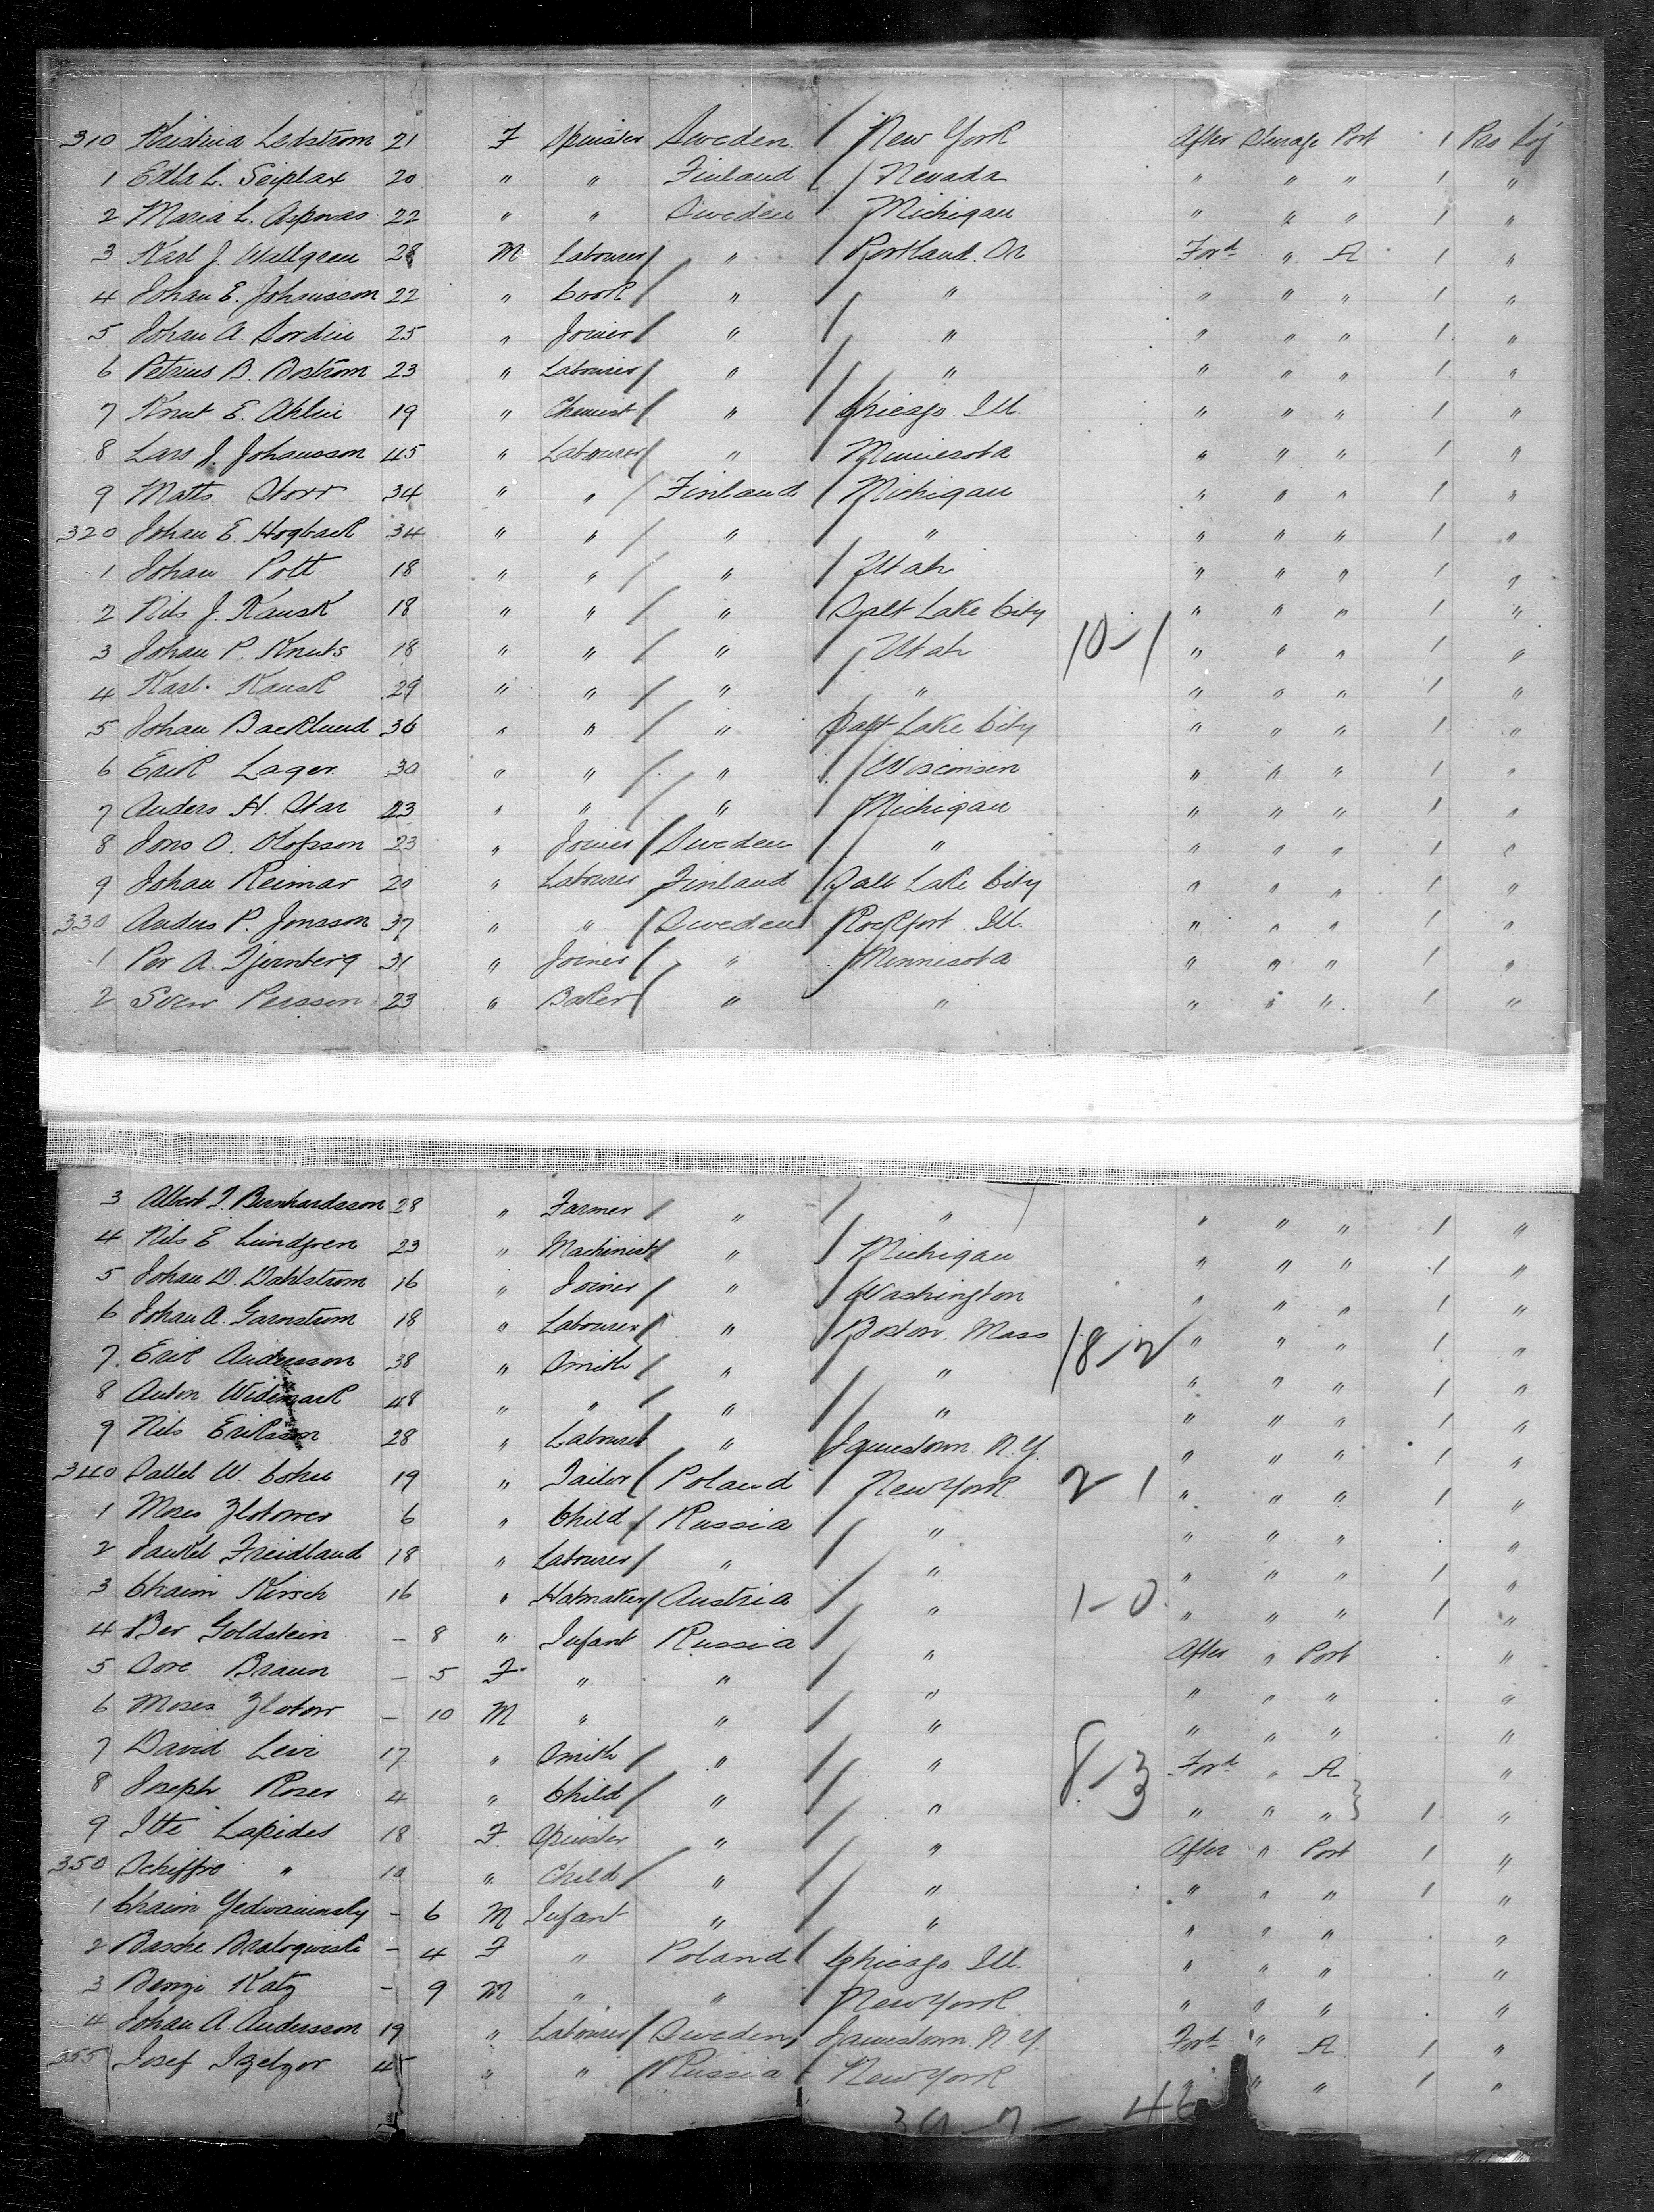 310 Kristina Ledstrom 21 F Spinster Sweden / New York After Steerage Port 1 Pro Soj
1 Edla L. Seiplax 20 " " Finland / Nevada " " " 1 "
2 Maria L. 22 " " Sweden / Michigan " " " 1 "
3 Karl J. Wallgren 28 M Labourer / " Portland Or Ford " A 1 "
4 Johan E. Johansson 22 " Cook / " " " " " 1 "
5 Johan A. Nordin 25 " Joiner / " / " " " " 1 "
6 Petrus B. Bostrom 23 " Labourer / " / " " " " 1 "
7 Knut E. Ahlin 19 " Chemist / " / Chicago Ill. " " " 1 "
8 Lars J. Johansson 45 " Labourer / " Minnesota " " " 1 "
9 Matts Storr 34 " " / Finland / Michigan " " " 1 "
320 Johan E. Hogback 34 " " / " " " " " 1 "
1 Johan Pott 18 " " / " / Utah " " " 1 "
2 Nils J. Kausk 18 " " / " Salt Lake City " " " 1 "
3 Johan P. Knuts 18 " " / " / Utah 10-1 " " " 1 "
4 Karl Kausk 29 " " / " " " " " 1 "
5 Johan Backlund 36 " " / " Salt Lake City " " " 1 "
6 Erik Lager 30 " " / " / Wisconsin " " " 1 "
7 Anders H. Star 23 " " / " Michigan " " " 1 "
8 Jons O. Olofsson 23 " Joiner / Sweden / " " " " 1 "
9 Johan Reimar 20 " Labourer Finland / Salt Lake City " " " 1 "
330 Anders P. Jonsson 37 " " / Sweden Rockfort Ill. " " " 1 "
1 Per A. Tjernberg 31 " Joiner / " Minnesota " " " 1 "
2 Sven Persson 23 " Baker / " " " " " 1 "
3 Albert I. Bernhardsson 28 " Farmer / " / " " " " 1 "
4 Nils E. Lundgren 23 " Machinist / " / Michigan " " " 1 "
5 Johan D. Dahlstrom 16 " Joiner / " Washington " " " 1 "
6 Johan A. Garnstrom 18 " Labourer / " Boston Mass 18-2 " " " 1 "
7 Erik Andersson 38 " Smith / " / " " " " 1 "
8 Anton Widemark 48 " " / " / " " " " 1 "
9 Nils Eriksson 28 " Labourer " Jamestown N.Y. " " " 1 "
340 W. Cohn 19 " Tailor / Poland / New York 2-1 " " " 1 "
1 Moses Zlotower 6 " Child / Russia / " " " " "
2 Jankel Freidland 18 " Labourer / " / " " " " 1 "
3 Chaim Kirsch 16 " Hatmaker / Austria / " 1-0 " " " 1 "
4 Ber Goldstein - 8 " Infant Russia / " After " Port "
5 Sore Braun - 5 F " " / " " " " "
6 Moses Zlotow - 10 M " " / " " " " "
7 David Levi 17 " Smith / " / " 8-3 Ford " A "
8 Joseph Roser 4 " Child / " / " " " " } 1 "
9 Itte Lapides 18 F Spinster " / " After " Port 1 "
350 Schiffre " 10 " Child / " / " " " " 1 "
1 Chaim - 6 M Infant " " " " " "
2 Basche - 4 F " Poland / Chicago Ill. " " " "
3 Benzi Katz - 9 M " " New York " " " "
4 Johan A. Andersson 19 " Labourer / Sweden Jamestown N.Y. Ford " A 1 "
355 Josef Izelzor 45 " " / Russia / New York " " " 1 "
39-7 - 46